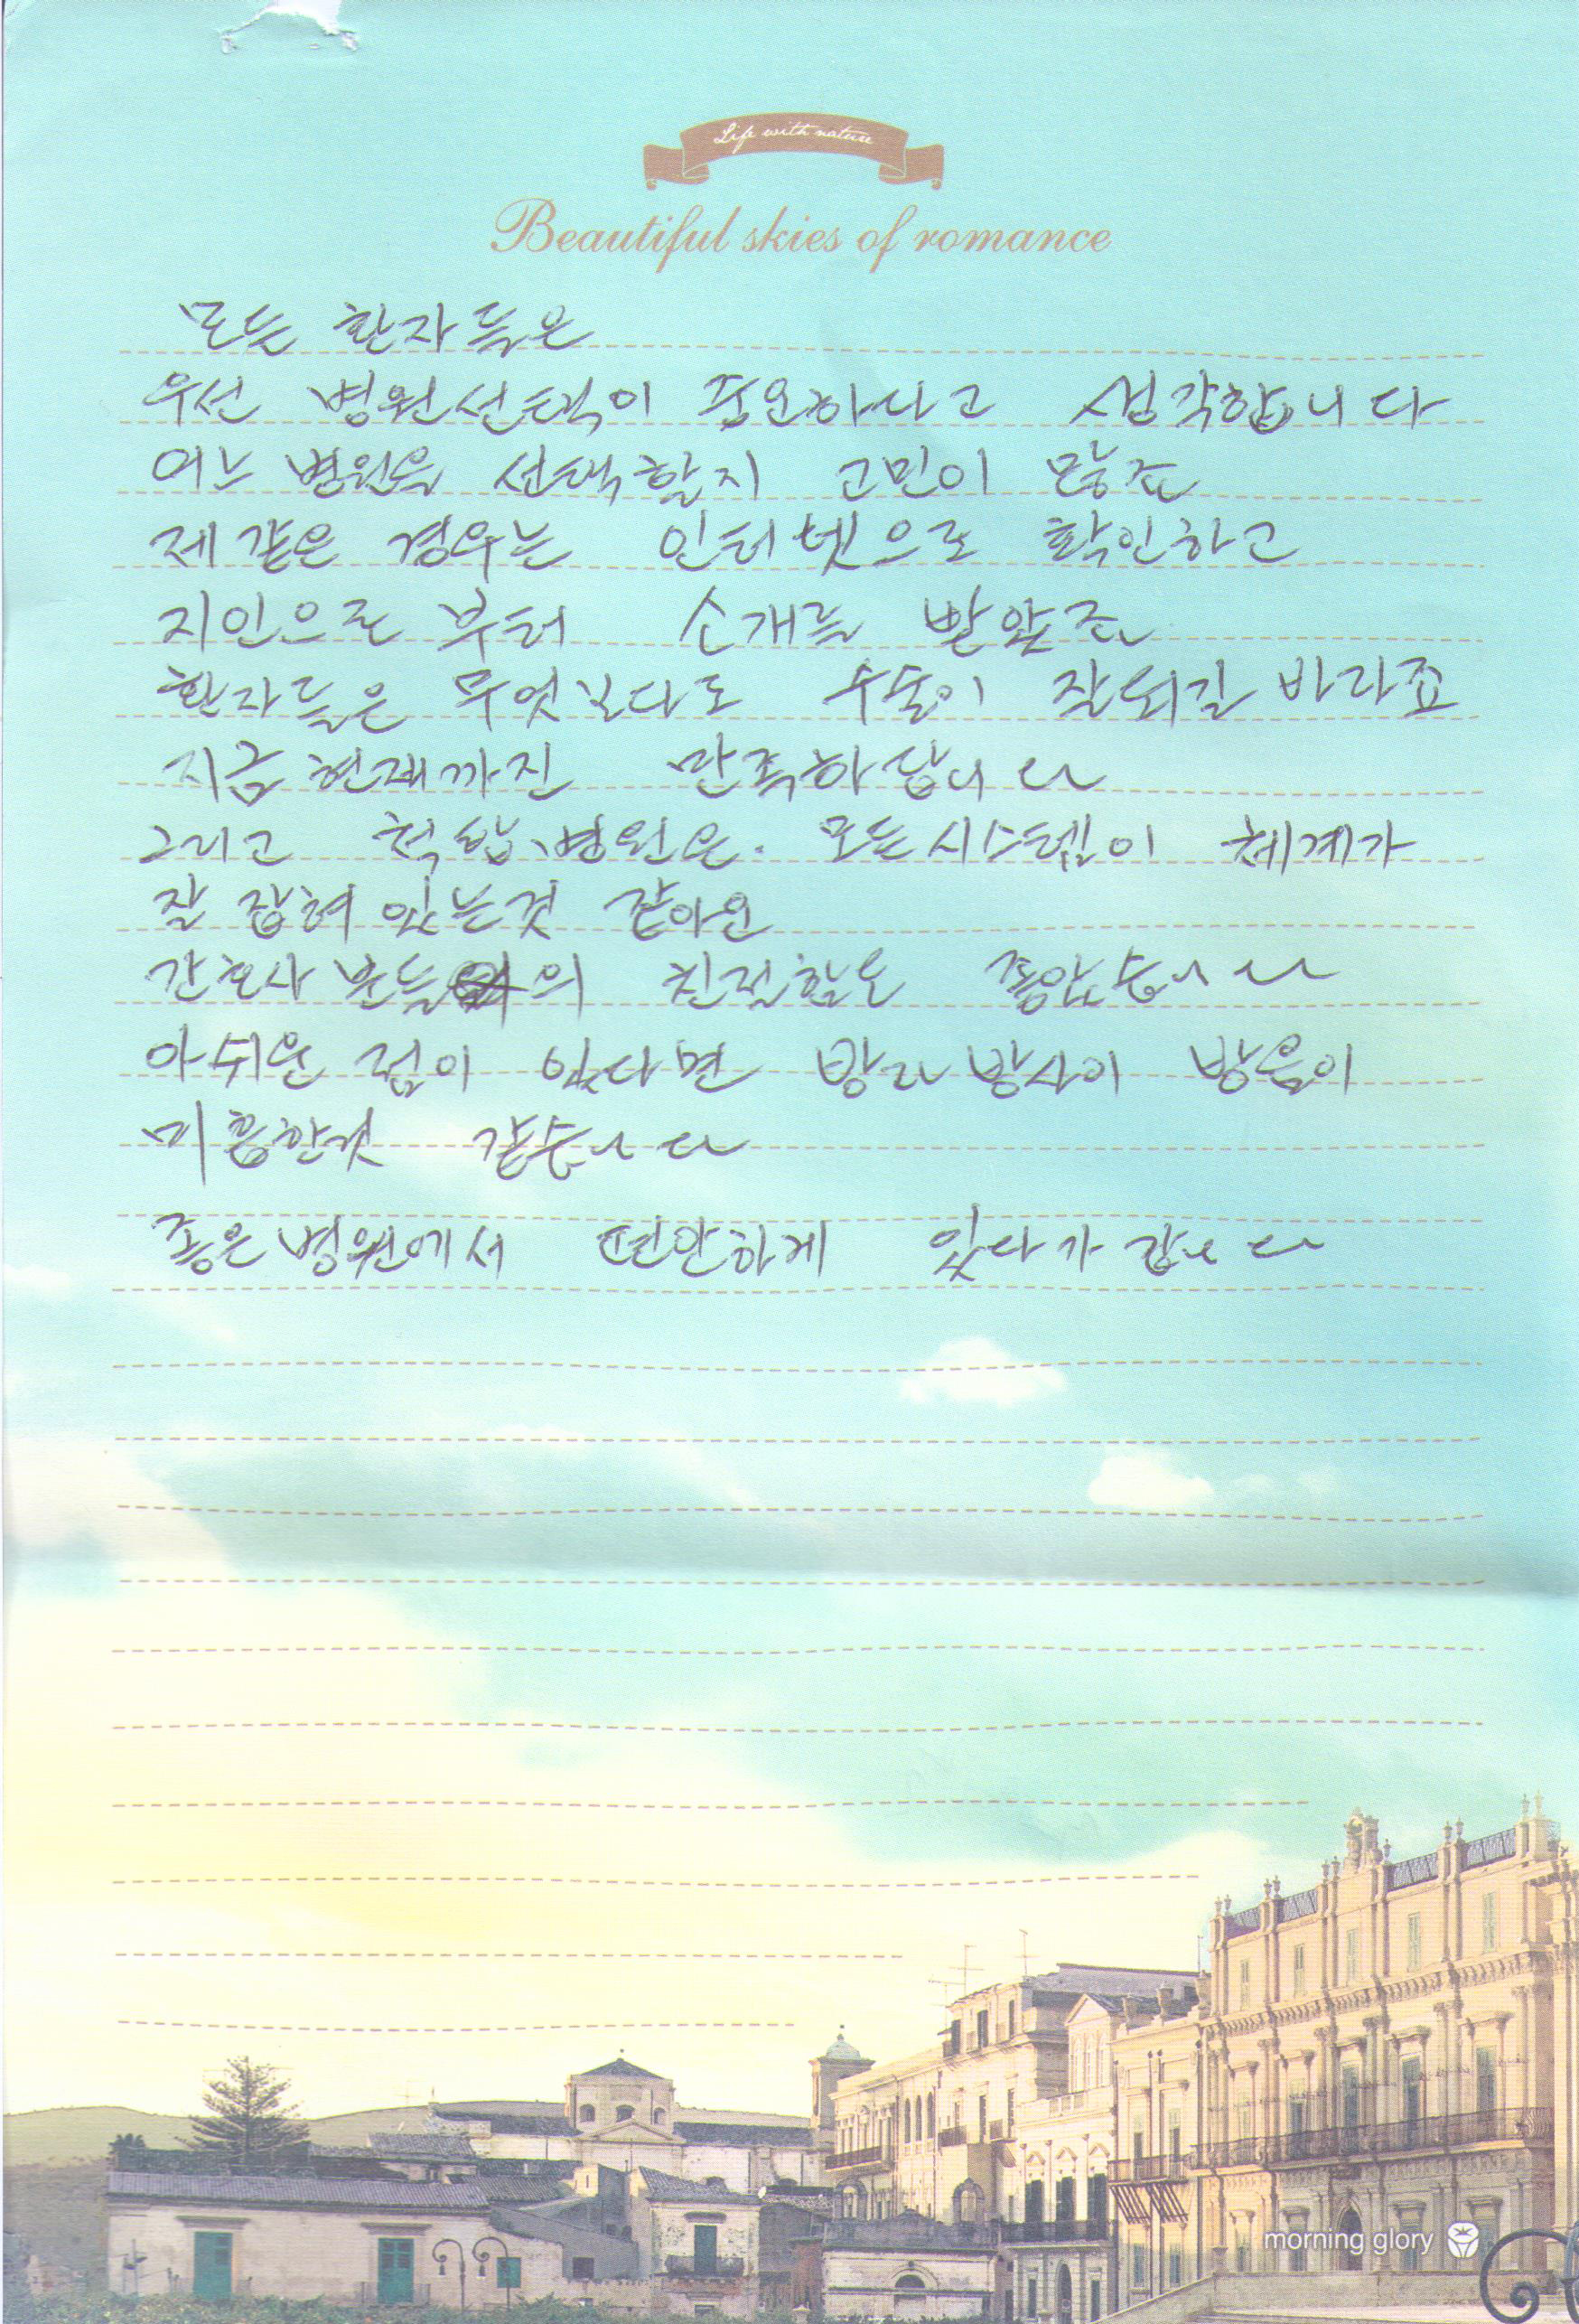 Life with nature
Beautiful skies of romance
모든 환자들은
우선 병원선택이 중요하다고 생각합니다
어느 병원을 선택할지 고민이 많죠
제 같은 경우는 인터넷으로 확인하고
지인으로 부터 소개를 받았죠
환자들은 무엇보다도 수술이 잘되길 바라죠
지금 현재까진 만족하답니다
그리고 척탑병원은. 모든시스템이 체계가
잘 잡혀 있는것 같아요
간호사 분들의 친절함도 좋았습니다
아쉬운 점이 있다면 방과 방사이 방음이
미흡한것 같습니다
좋은병원에서 편안하게 있다가 갑니다
morning glory